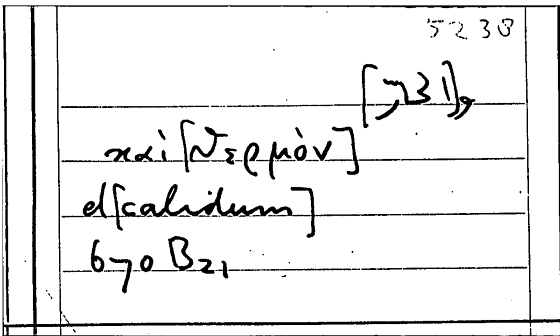 5238
καὶ [θερμὸν]
et [calidum]
670 B21